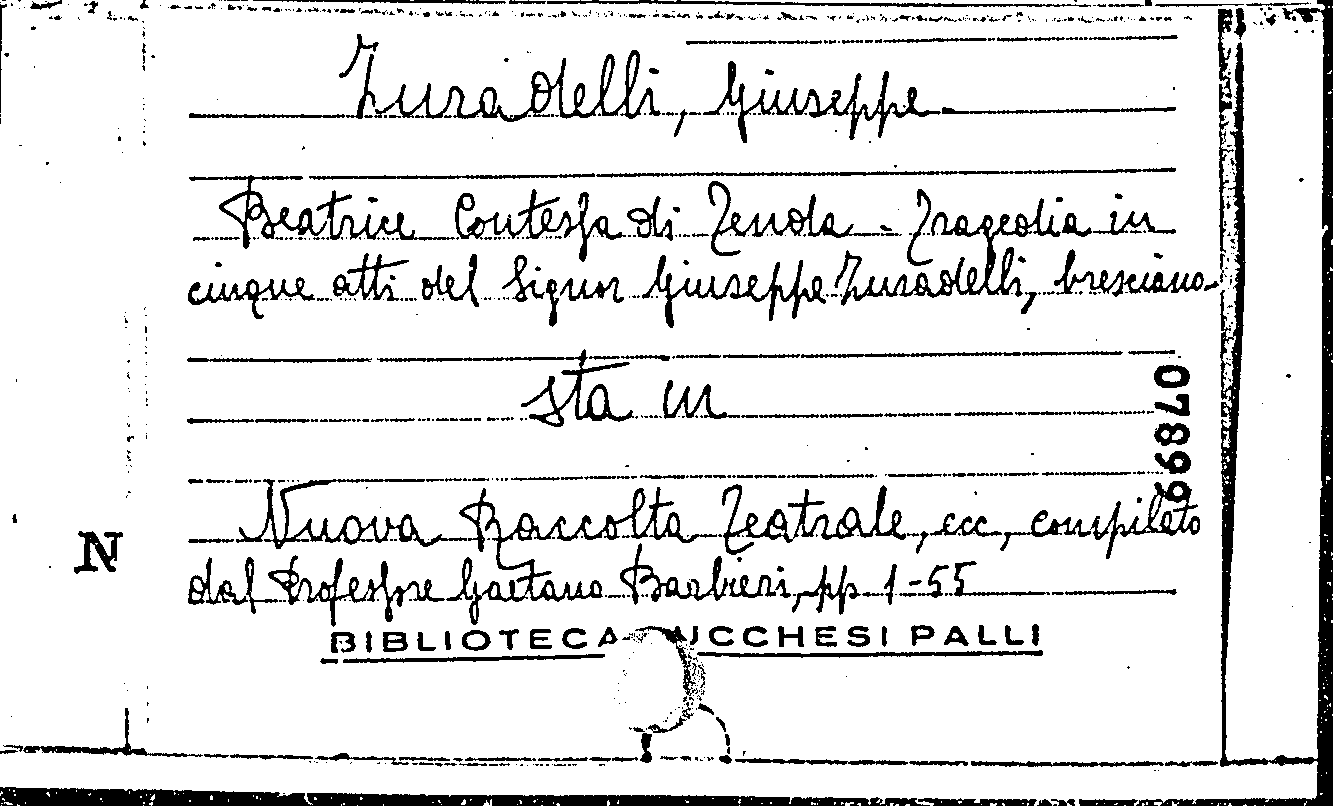 Zuradelli, Giuseppe.
Beatrice Contessa di Tenda - Tragedia in
cinque atti del Signor Giuseppe Zuradelli, bresciano.
sta in
Nuova Raccolta Teatrale, ecc, compilato
dal Professore Gaetano Barbieri, pp. 1-55
BIBLIOTECA LUCCHESI PALLI
N
07899